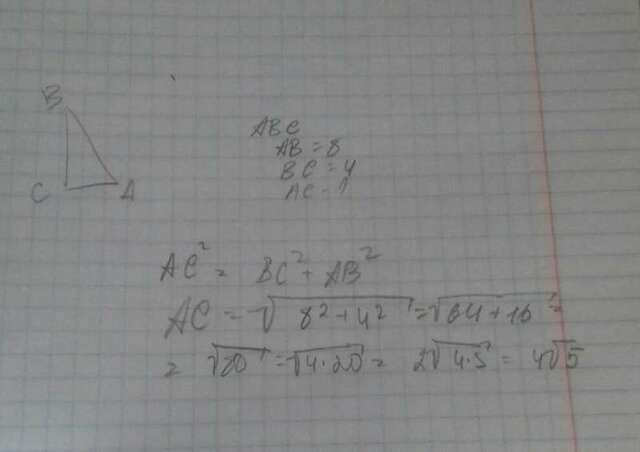 B
C A
ABC
AB = 8
BC = 4
AC - ?
AC² = BC² + AB²
AC = √8²+4² = √64+16 =
= √80 = √4·20 = 2√4·5 = 4√5